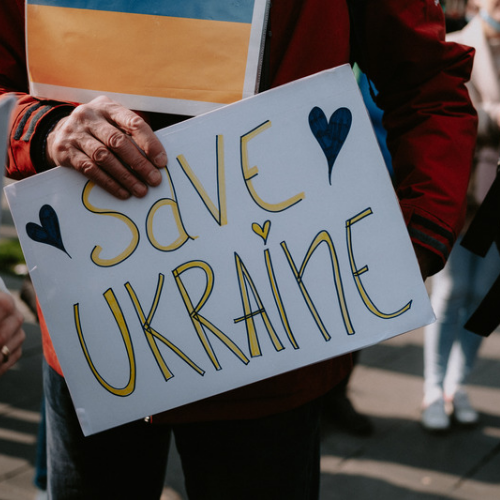 Save
UKRAiNE